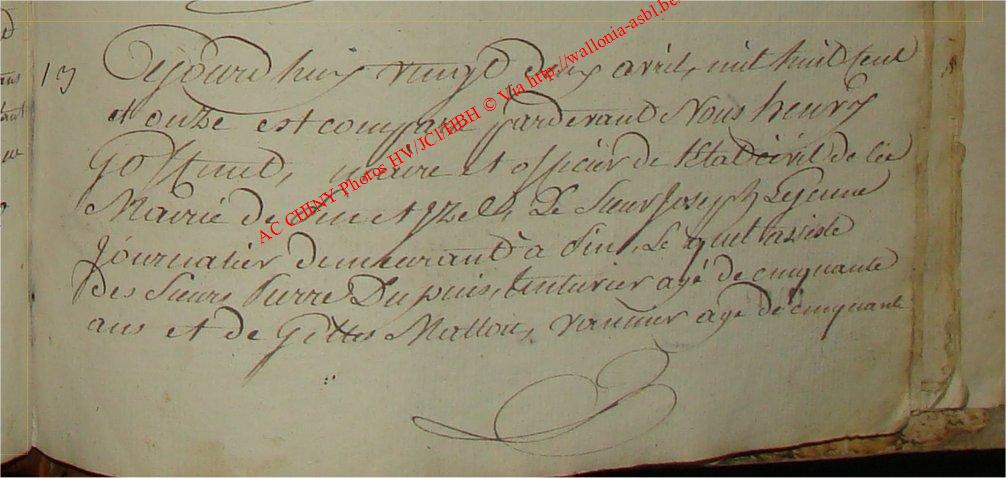 13 Cejourd'huy vingt deux avril, mil huit cent
et onze est comparu pardevant Nous henry
Gofftinet, maire et officier de l'Etat civil de
Mairie de et Izelle, Le Sieur Joseph Lejeune
journalier demeurant à Pin, Lequel assisté
des Sieurs Pierre Dupuis, teinturier agé de cinquante
ans et de Gilles Mallou, vannier agé de cinquante
AC CHINY Photos HV/JCl/HBH © Via http://wallonia-asbl.be